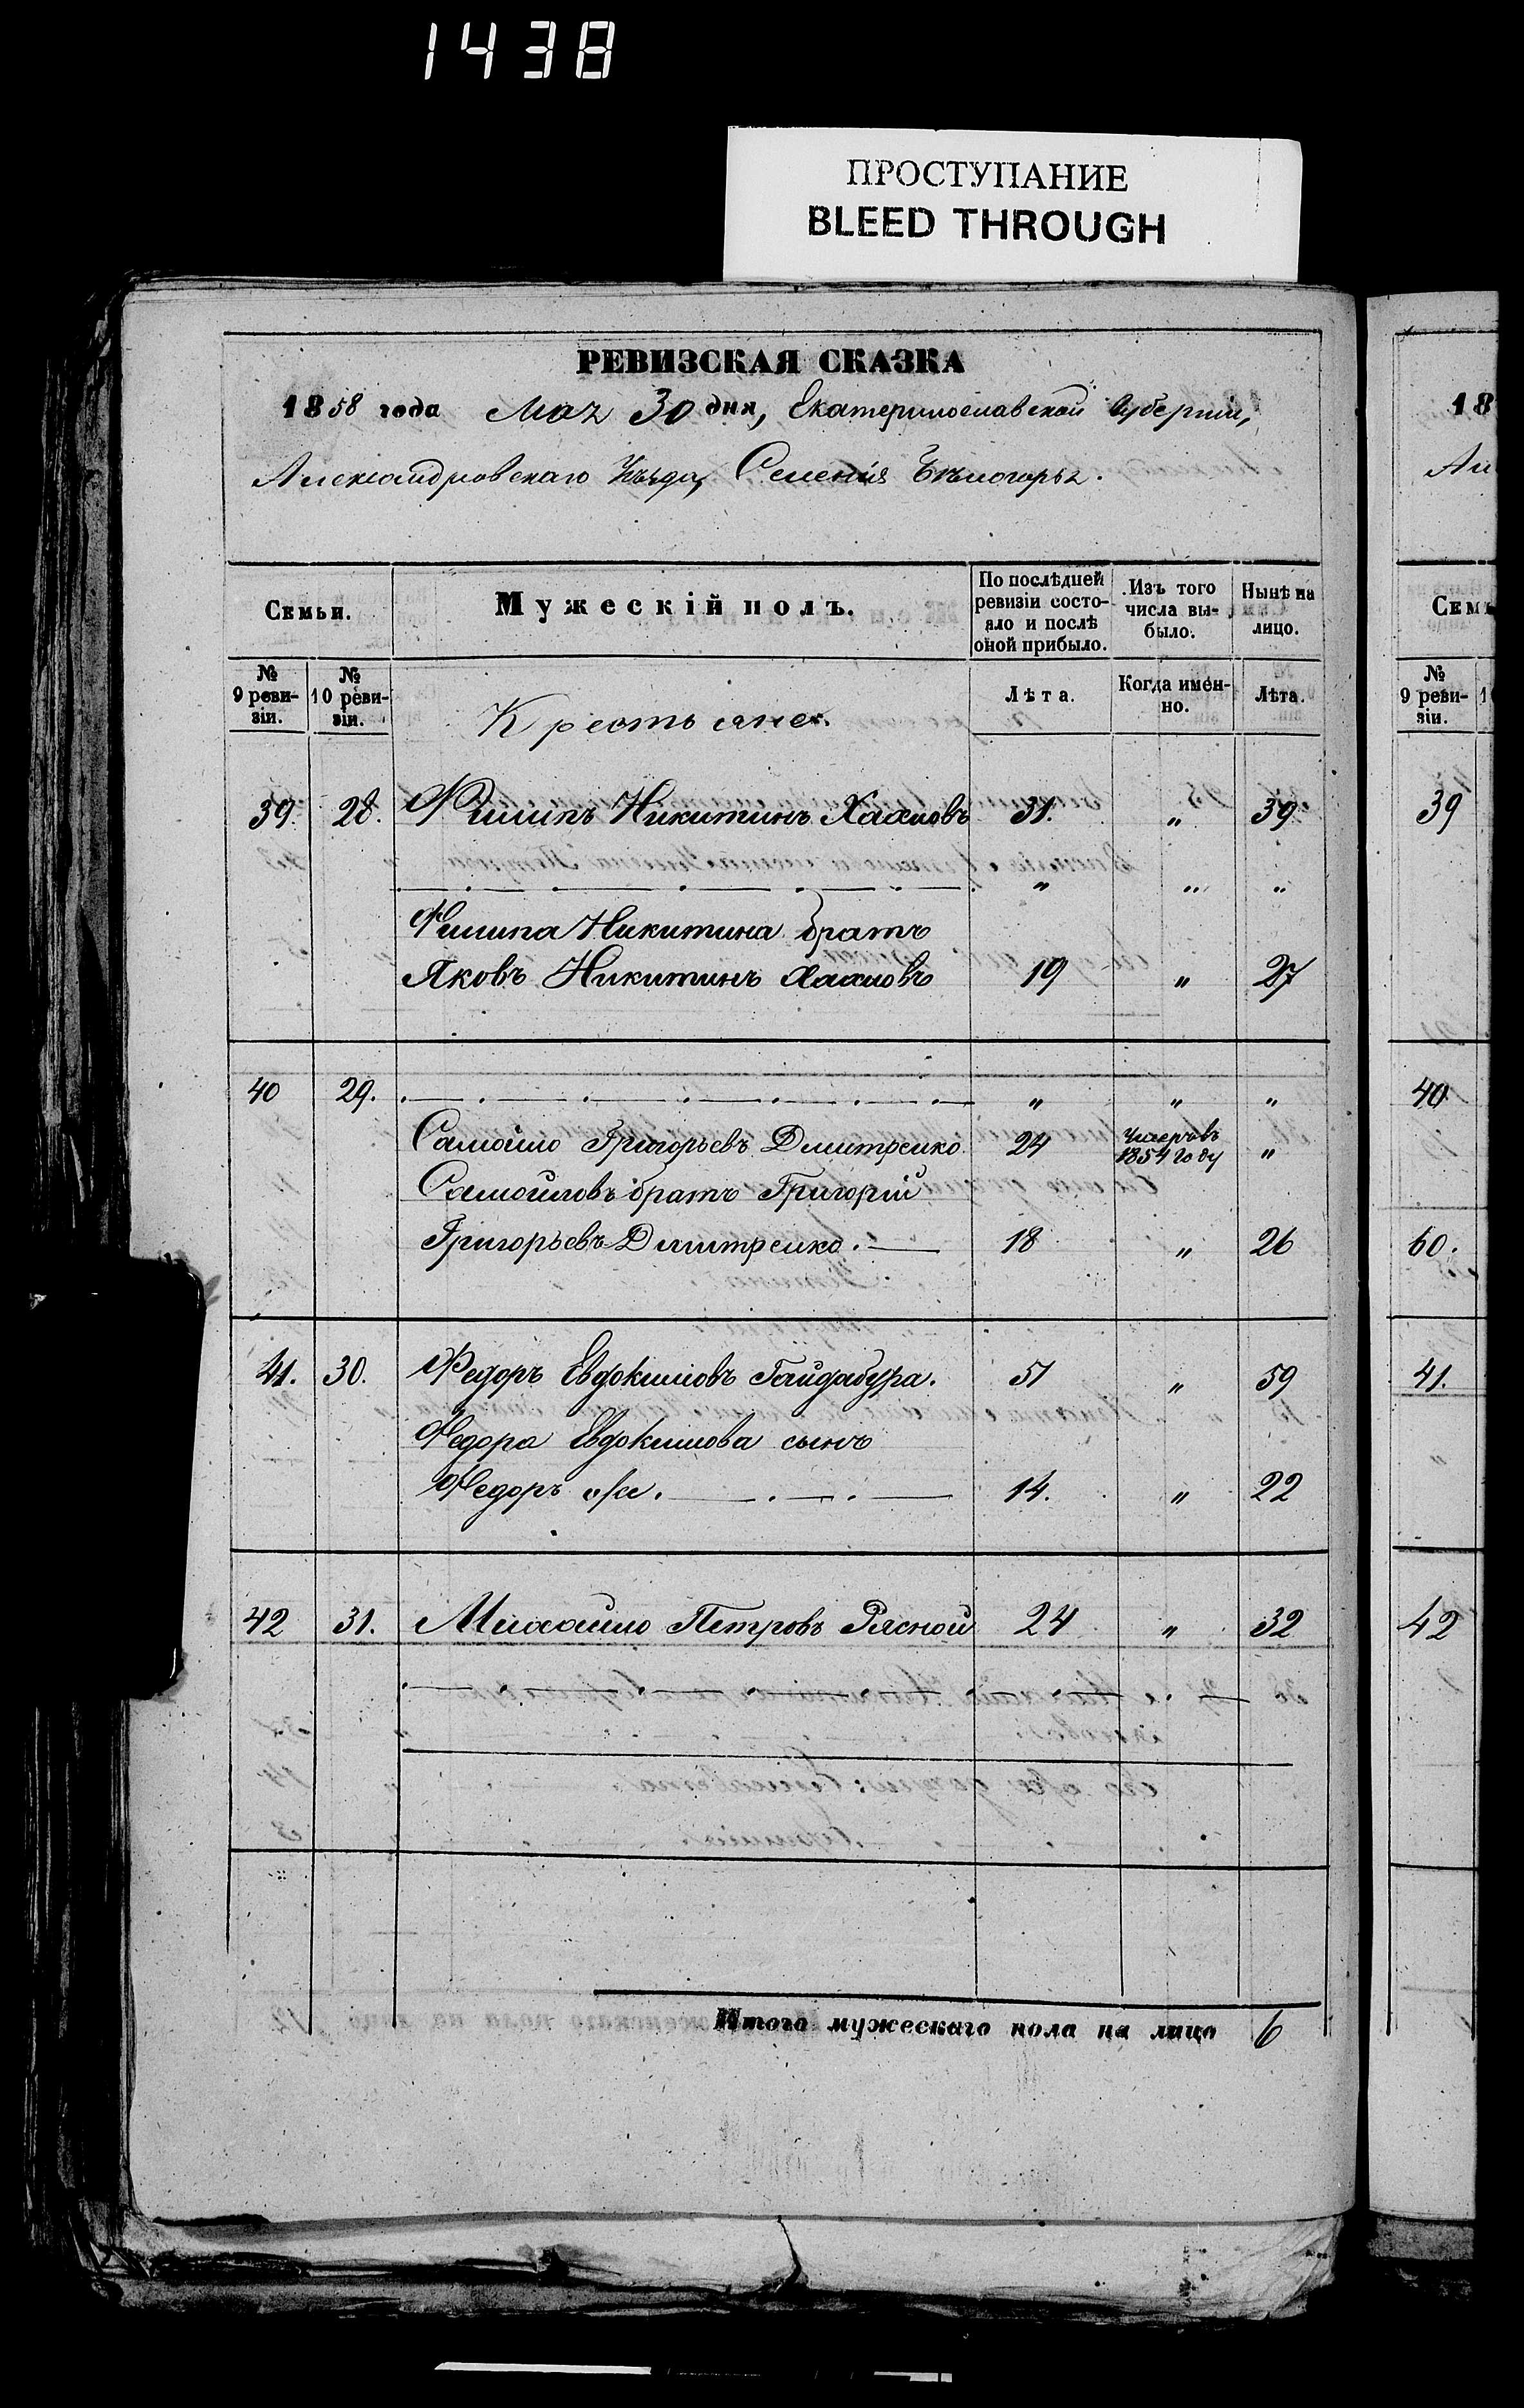 1438
ПРОСТУПАНИЕ
BLEED THROUGH
РЕВИЗСКАЯ СКАЗКА
1858 года Мая 30 дня, Екатеринославской Губерніи,
Александровскаго Уѣзда, Селенія Бѣлогорья.
Семьи.
Мужескій полъ.
По послѣдней ревизіи состояло и послѣ оной прибыло.
Изъ того числа выбыло.
Нынѣ на лицо.
№ 9 ревизіи.
№ 10 ревизіи.
Крестьяне.
Лѣта.
Когда именно.
Лѣта.
39 28. Филипъ Никитинъ Хахловъ 31. „ 39
„ „ „
Филипа Никитина братъ
Яковъ Никитинъ Хахловъ 19 „ 27
40 29. „ „ „
Самойло Григорьевъ Дмитренко 24 Умеръ въ 1854 году „
Самойловъ братъ Григорій
Григорьевъ Дмитренко. 18 „ 26
41. 30. Федоръ Евдокимовъ Гайдабура. 51 „ 59
Федора Евдокимова сынъ
Федоръ 14. „ 22
42 31. Михайло Петровъ Рясной 24 „ 32
Итого мужескаго пола на лицо 6
18
Семь
№ 9 ревизіи.
39
40
60.
41.
42